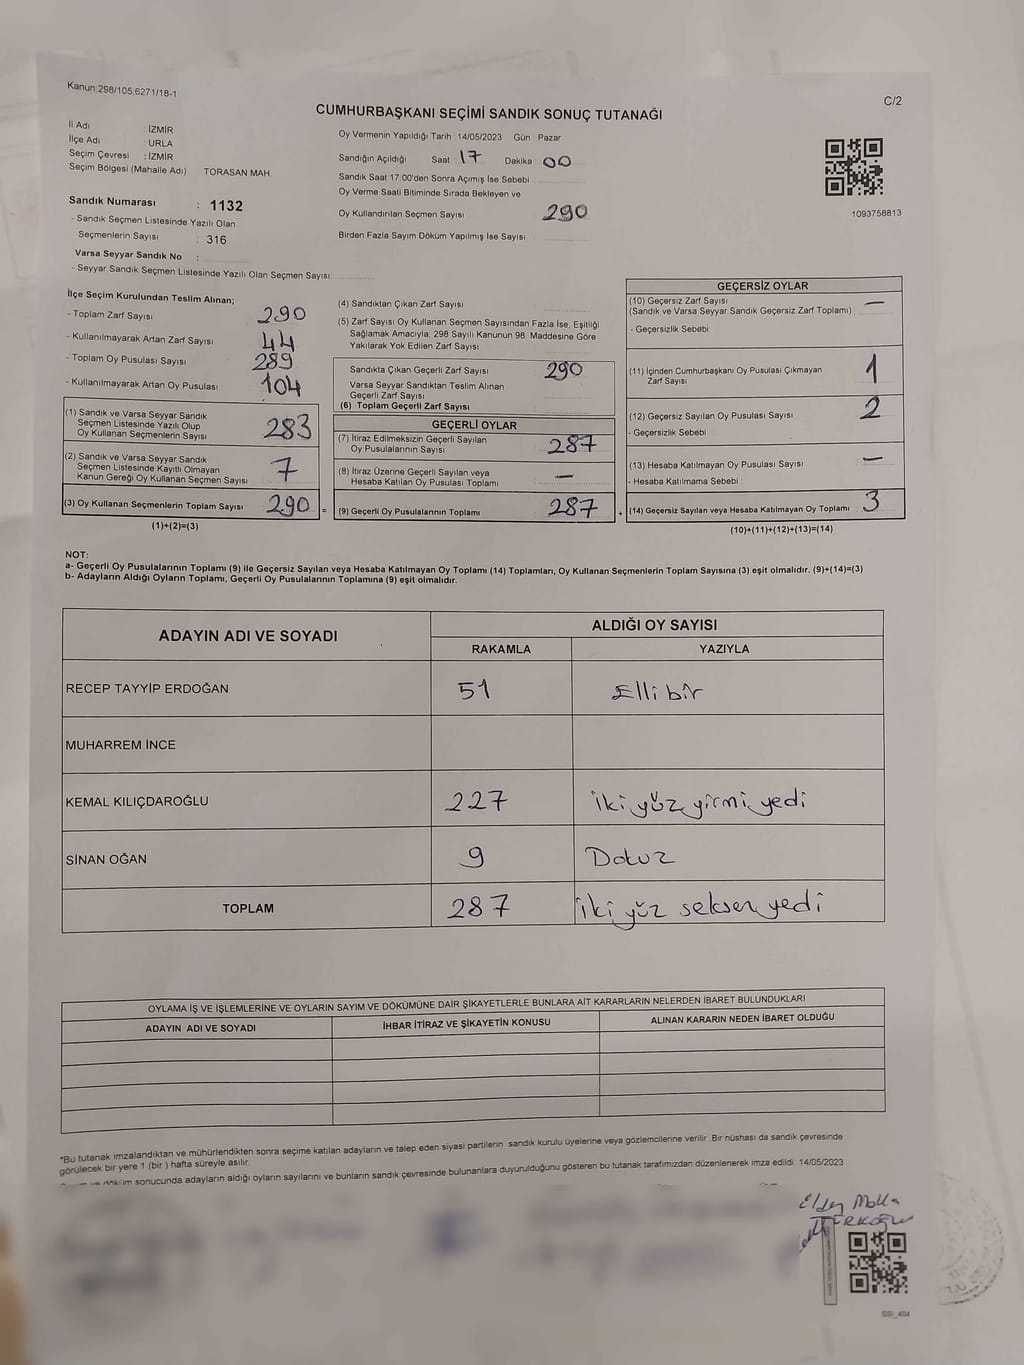 Kanun:298/105,6271/18-1
C/2
CUMHURBAŞKANI SEÇİMİ SANDIK SONUÇ TUTANAĞI
İl Adı : İZMİR
İlçe Adı : URLA
Seçim Çevresi : İZMİR
Seçim Bölgesi (Mahalle Adı) TORASAN MAH.
Sandık Numarası : 1132
- Sandık Seçmen Listesinde Yazılı Olan
Seçmenlerin Sayısı : 316
Varsa Seyyar Sandık No :
- Seyyar Sandık Seçmen Listesinde Yazılı Olan Seçmen Sayısı:
Oy Vermenin Yapıldığı Tarih 14/05/2023 Gün Pazar
Sandığın Açıldığı Saat 17 Dakika 00
Sandık Saat 17:00'den Sonra Açımış İse Sebebi
Oy Verme Saati Bitiminde Sırada Bekleyen ve
Oy Kullandırılan Seçmen Sayısı 290
Birden Fazla Sayım Döküm Yapılmış İse Sayısı
1093758813
İlçe Seçim Kurulundan Teslim Alınan;
- Toplam Zarf Sayısı 290
- Kullanılmayarak Artan Zarf Sayısı 44
- Toplam Oy Pusulası Sayısı 289
- Kullanılmayarak Artan Oy Pusulası 104
(1) Sandık ve Varsa Seyyar Sandık
Seçmen Listesinde Yazılı Olup
Oy Kullanan Seçmenlerin Sayısı 283
(2) Sandık ve Varsa Seyyar Sandık
Seçmen Listesinde Kayıtlı Olmayan
Kanun Gereği Oy Kullanan Seçmen Sayısı 7
(3) Oy Kullanan Seçmenlerin Toplam Sayısı 290 =
(1)+(2)=(3)
(4) Sandıktan Çıkan Zarf Sayısı
(5) Zarf Sayısı Oy Kullanan Seçmen Sayısından Fazla İse, Eşitliği
Sağlamak Amacıyla; 298 Sayılı Kanunun 98. Maddesine Göre
Yakılarak Yok Edilen Zarf Sayısı
Sandıkta Çıkan Geçerli Zarf Sayısı 290
Varsa Seyyar Sandıktan Teslim Alınan
Geçerli Zarf Sayısı
(6) Toplam Geçerli Zarf Sayısı
GEÇERLİ OYLAR
(7) İtiraz Edilmeksizin Geçerli Sayılan
Oy Pusulalarının Sayısı 287
(8) İtiraz Üzerine Geçerli Sayılan veya
Hesaba Katılan Oy Pusulası Toplamı —
(9) Geçerli Oy Pusulalarının Toplamı 287 +
GEÇERSİZ OYLAR
(10) Geçersiz Zarf Sayısı —
(Sandık ve Varsa Seyyar Sandık Geçersiz Zarf Toplamı)
- Geçersizlik Sebebi
(11) İçinden Cumhurbaşkanı Oy Pusulası Çıkmayan
Zarf Sayısı 1
(12) Geçersiz Sayılan Oy Pusulası Sayısı 2
- Geçersizlik Sebebi
(13) Hesaba Katılmayan Oy Pusulası Sayısı —
- Hesaba Katılmama Sebebi
(14) Geçersiz Sayılan veya Hesaba Katılmayan Oy Toplamı : 3
(10)+(11)+(12)+(13)=(14)
NOT:
a- Geçerli Oy Pusulalarının Toplamı (9) ile Geçersiz Sayılan veya Hesaba Katılmayan Oy Toplamı (14) Toplamları, Oy Kullanan Seçmenlerin Toplam Sayısına (3) eşit olmalıdır. (9)+(14)=(3)
b- Adayların Aldığı Oyların Toplamı, Geçerli Oy Pusulalarının Toplamına (9) eşit olmalıdır.
ADAYIN ADI VE SOYADI ALDIĞI OY SAYISI
RAKAMLA YAZIYLA
RECEP TAYYİP ERDOĞAN 51 Elli bir
MUHARREM İNCE
KEMAL KILIÇDAROĞLU 227 iki yüz yirmi yedi
SİNAN OĞAN 9 Dokuz
TOPLAM 287 iki yüz seksen yedi
OYLAMA İŞ VE İŞLEMLERİNE VE OYLARIN SAYIM VE DÖKÜMÜNE DAİR ŞİKAYETLERLE BUNLARA AİT KARARLARIN NELERDEN İBARET BULUNDUKLARI
ADAYIN ADI VE SOYADI İHBAR İTİRAZ VE ŞİKAYETİN KONUSU ALINAN KARARIN NEDEN İBARET OLDUĞU
*Bu tutanak imzalandıktan ve mühürlendikten sonra seçime katılan adayların ve talep eden siyasi partilerin sandık kurulu üyelerine veya gözlemcilerine verilir. Bir nüshası da sandık çevresinde
görülecek bir yere 1 (bir ) hafta süreyle asılır.
ve döküm sonucunda adayların aldığı oyların sayılarını ve bunların sandık çevresinde bulunanlara duyurulduğunu gösteren bu tutanak tarafımızdan düzenlenerek imza edildi. 14/05/2023